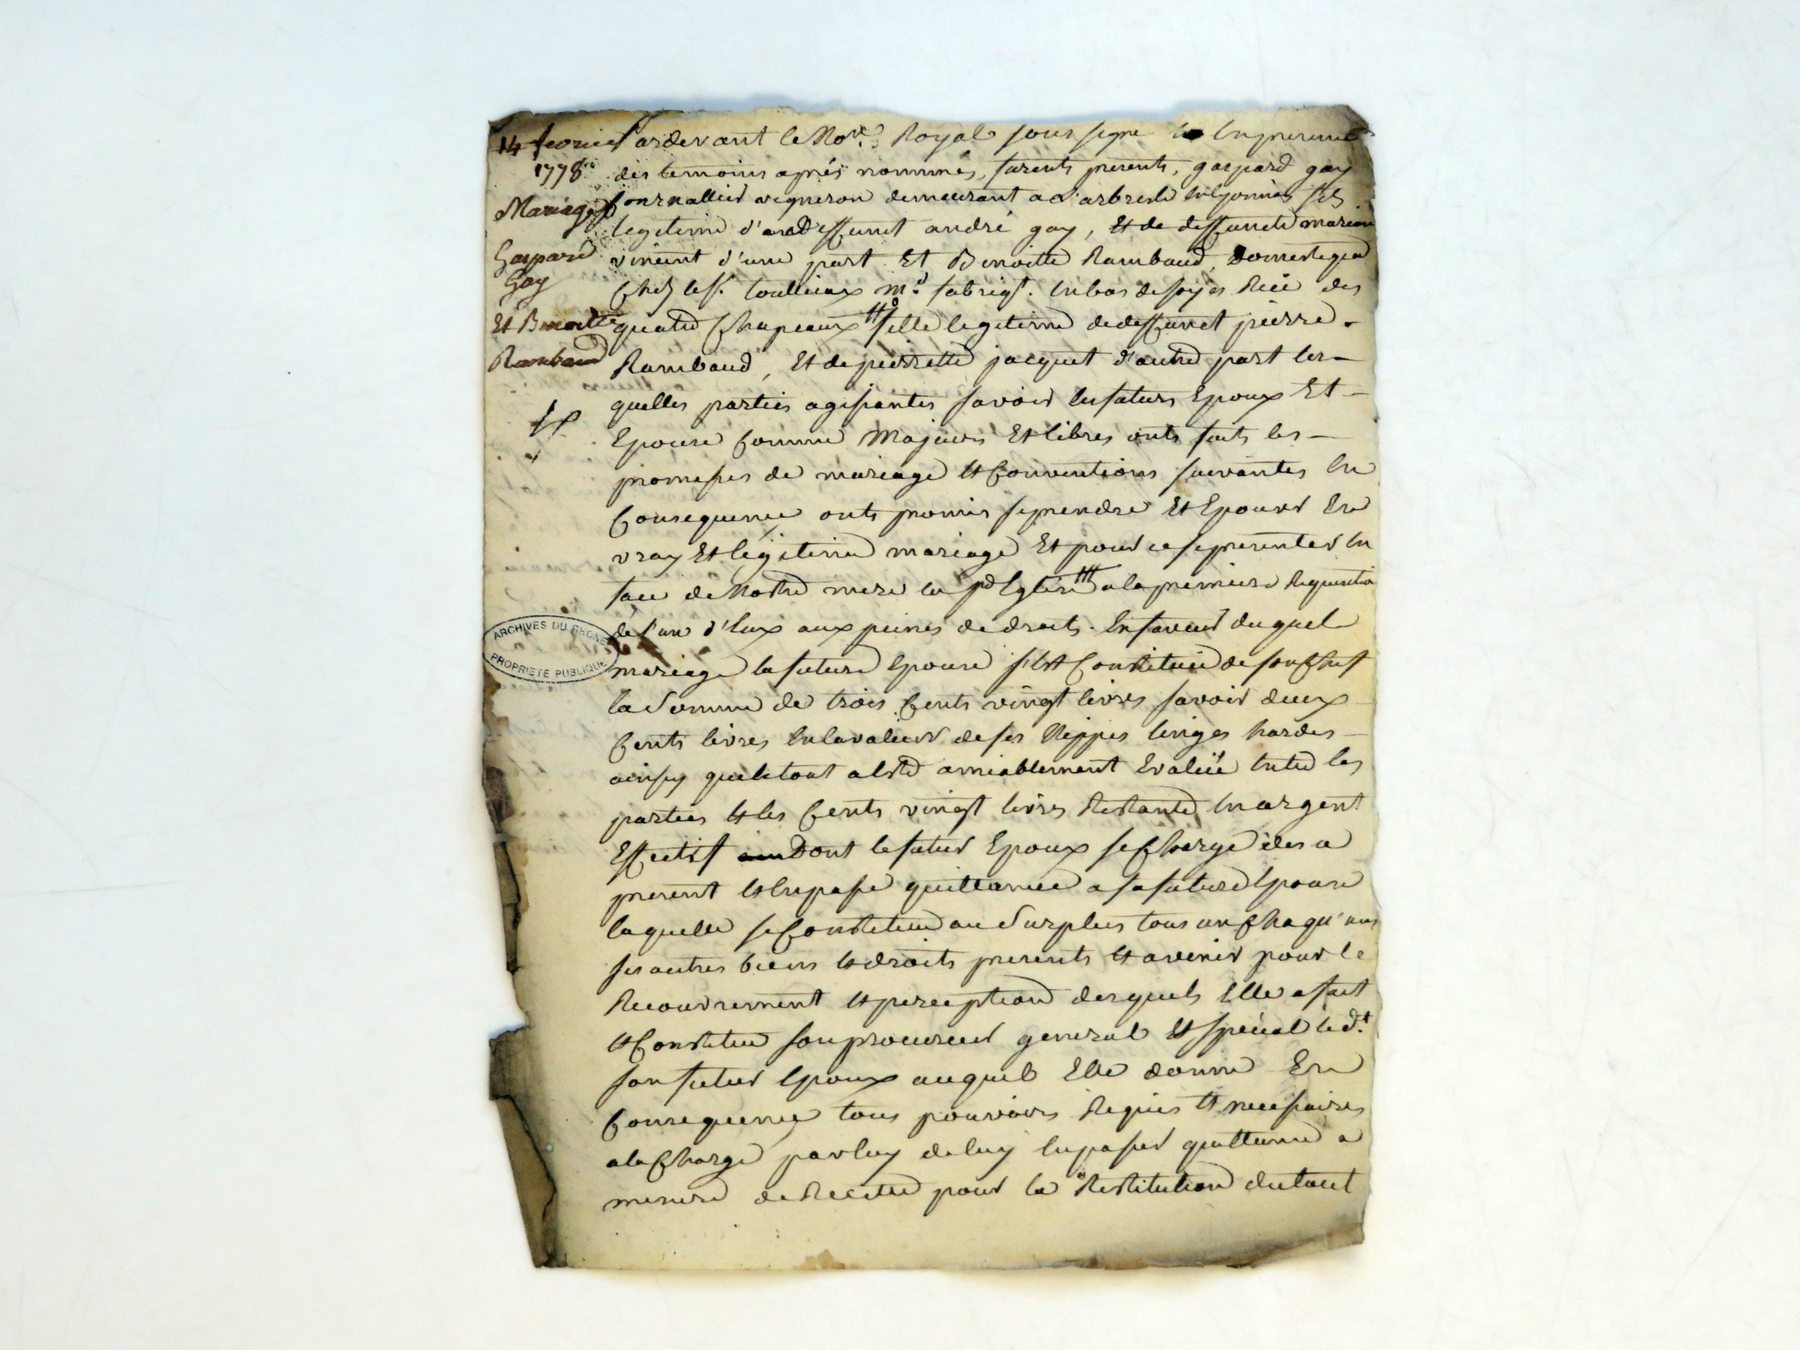 14 fevrier
1778
Mariage
Gaspard
Gay
Et Benoitte
Rambaud
ARCHIVES DU RHONE
PROPRIETE PUBLIQUE
Pardevant le No.re Royal sous signe En presence
des temoins aprés nommés, furents presents, gaspard gay
Journallier vigneron demeurant a L'arbresle en lyonnois fils
legitime d'andré gay, Et de deffuncte
vincent d'une part Et Benoitte Rambaud, Domestique
Chez le Sr. toullieux m.d fabriqt. en bas de soyes Rue des
quatre Chapeaux fille legitime de deffunct pierre
Rambaud, Et de pierrette jacquet d'autre part les-
quelles parties agissantes savoir les futurs Epoux Et
Epouse Comme Majeurs Et libres onts faits les
promesses de mariage Et Conventions suivantes En
Consequence onts promis se prendre Et Epouser En
vray Et légitime mariage Et pour ce se presenter En
face de Nostre mere la Eglise a la premiere Requisition
de l'un d'Eux aux peines de droits. En faveur duquel
mariage la future Epouse s'est Constituée de son Chef
la Somme de trois Cents vingt livres savoir deux
Cents livres En la valeur de ses Nippes linges hardes
ainsy que le tout a Esté amiablement Evalüé Entre les
parties Et les Cents vingt livres Restante En argent
Effectif Dont le futur Epoux se Charge des a
present Et En passe quittance a sa future Epouse
laquelle se Constitue au Surplus tous un Chaqu'uns
ses autres biens Et droits presents Et avenir pour le
Recouvrement Et perception desquels Elle a fait
Et Constitue son procureur general Et special led.t
son futur Epoux auquel Elle donne En
Consequence tous pouvoirs Requis Et necessaires
a la Charge par luy de luy En passer quittance a
mesure de Recette pour la Restitution du tout